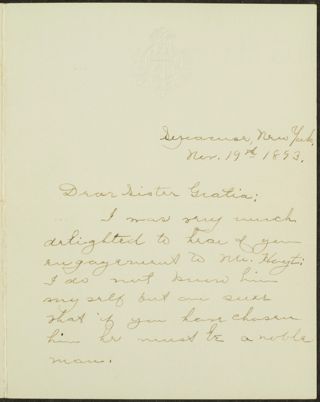 Syracuse, New York,
Nov. 19th 1893.
Dear Sister Gratia;
I was very much
delighted to hear of your
engagement to Mr. Hoyt;
I do not know him
myself but am sure
that if you have chosen
him he must be a noble
man.